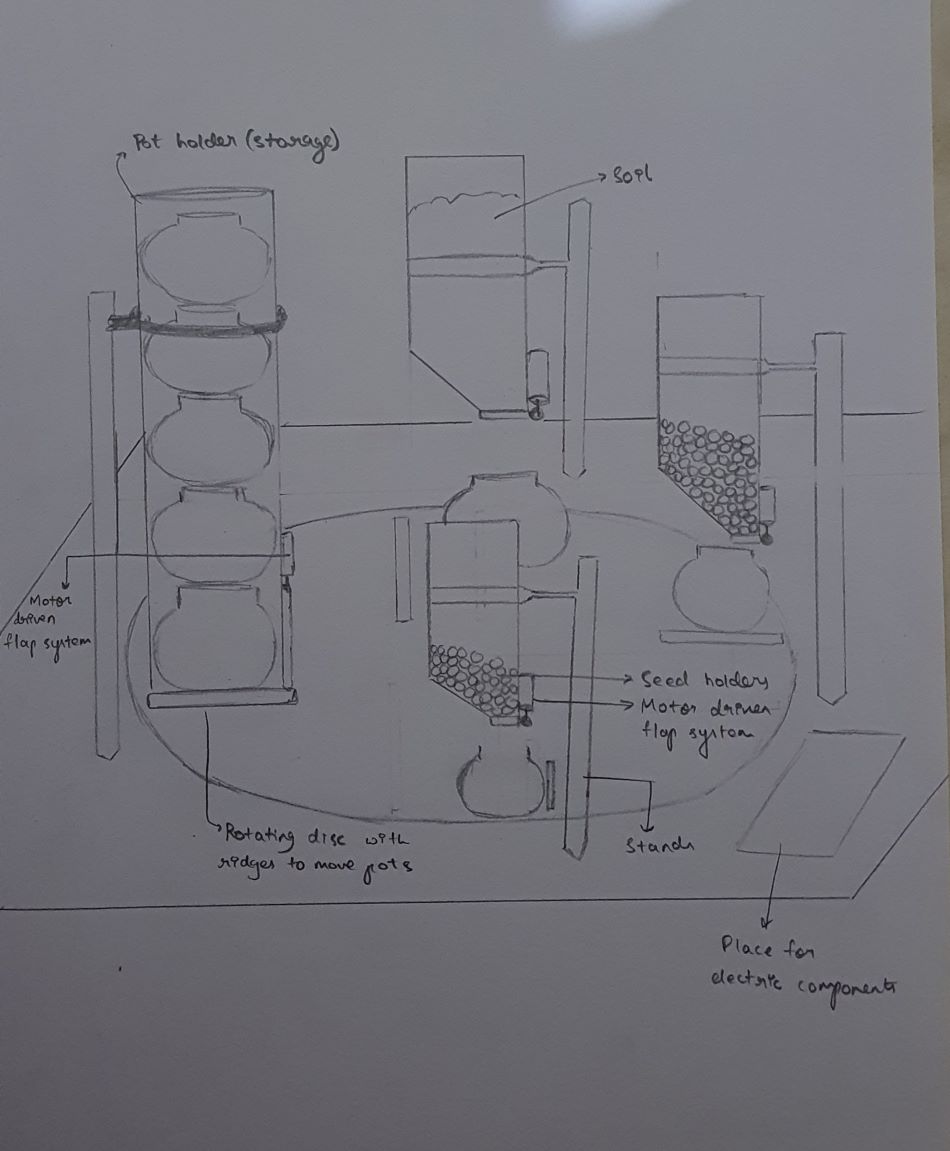 Pot holder (storage)
Soil
Motor
driven
flap system
Seed holders
Motor driven
flap system
Rotating disc with
ridges to move pots
Stands
Place for
electric components